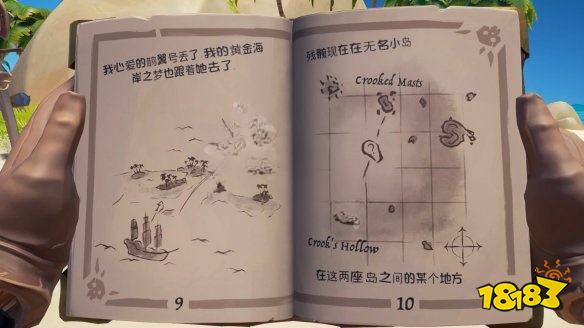 我心爱的鹊翼号丢了 我的黄金海
岸之梦也跟着她去了
9
残骸现在在无名小岛
Crooked Masts
Crook's Hollow
在这两座岛之间的某个地方
10
18183